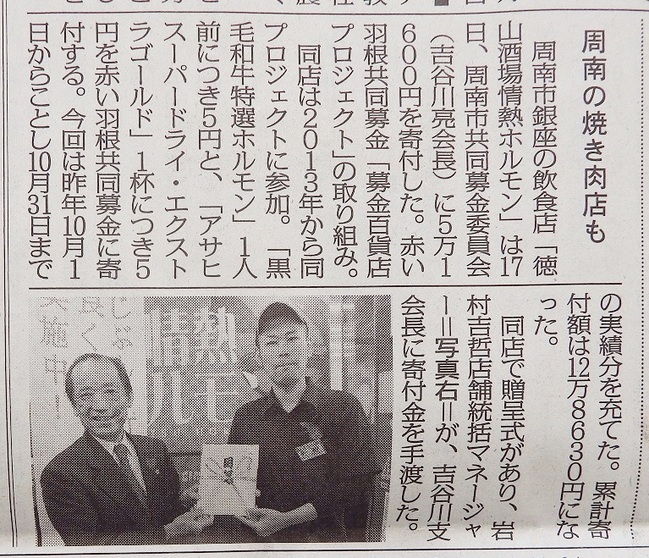 周南の焼き肉店も
周南市銀座の飲食店「徳
山酒場情熱ホルモン」は17
日、周南市共同募金委員会
（吉谷川亮会長）に5万1
600円を寄付した。赤い
羽根共同募金「募金百貨店
プロジェクト」の取り組み。
同店は2013年から同
プロジェクトに参加。「黒
毛和牛特選ホルモン」1人
前につき5円と、「アサヒ
スーパードライ・エクスト
ラゴールド」1杯につき5
円を赤い羽根共同募金に寄
付する。今回は昨年10月1
日からことし10月31日まで
の実績分を充てた。累計寄
付額は12万8630円にな
った。
同店で贈呈式があり、岩
村吉哲店舗統括マネージャ
ー＝写真右＝が、吉谷川支
会長に寄付金を手渡した。
熱
情
じぶ
良く
実施中！